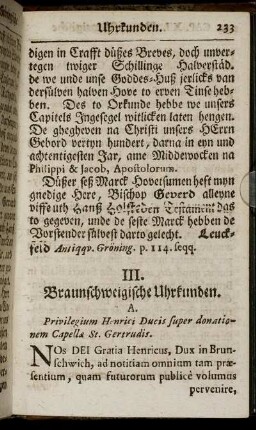 Uhrkunden. 233
digen in Crafft düßes Breves, doch unver-
tegen twiger Schillinge Halverstäd.
de we unde unse Goddes-Huß jerlicks van
dersülven halven Hove to erven Tinse heb-
ben. Des to Orkunde hebbe we unsers
Capitels Ingesegel witlicken laten hengen.
De ghegheven na Christi unsers HErrn
Gebord vertyn hundert, darna in eyn und
achtentigesten Jar, ame Middewocken na
Philippi & Jacob, Apostolorum.
Düßer seß Marck Hovetsumen heft myn
gnedige Here, Bischop Geverd alleyne
viffe uth Hanß Testament das
to gegeven, unde de seste Marck hebben de
Vorstender sülvest darto gelecht. Leuck-
feld Antiqqv. Gröning. p. 114. seqq.
III.
Braunschweigische Uhrkunden.
A.
Privilegium Henrici Ducis super donatio-
nem Capella St. Gertrudis.
NOs DEI Gratia Henricus, Dux in Brun-
schwich, ad notitiam omnium tam præ-
sentium, quam futurorum publicè volumus
pervenire,